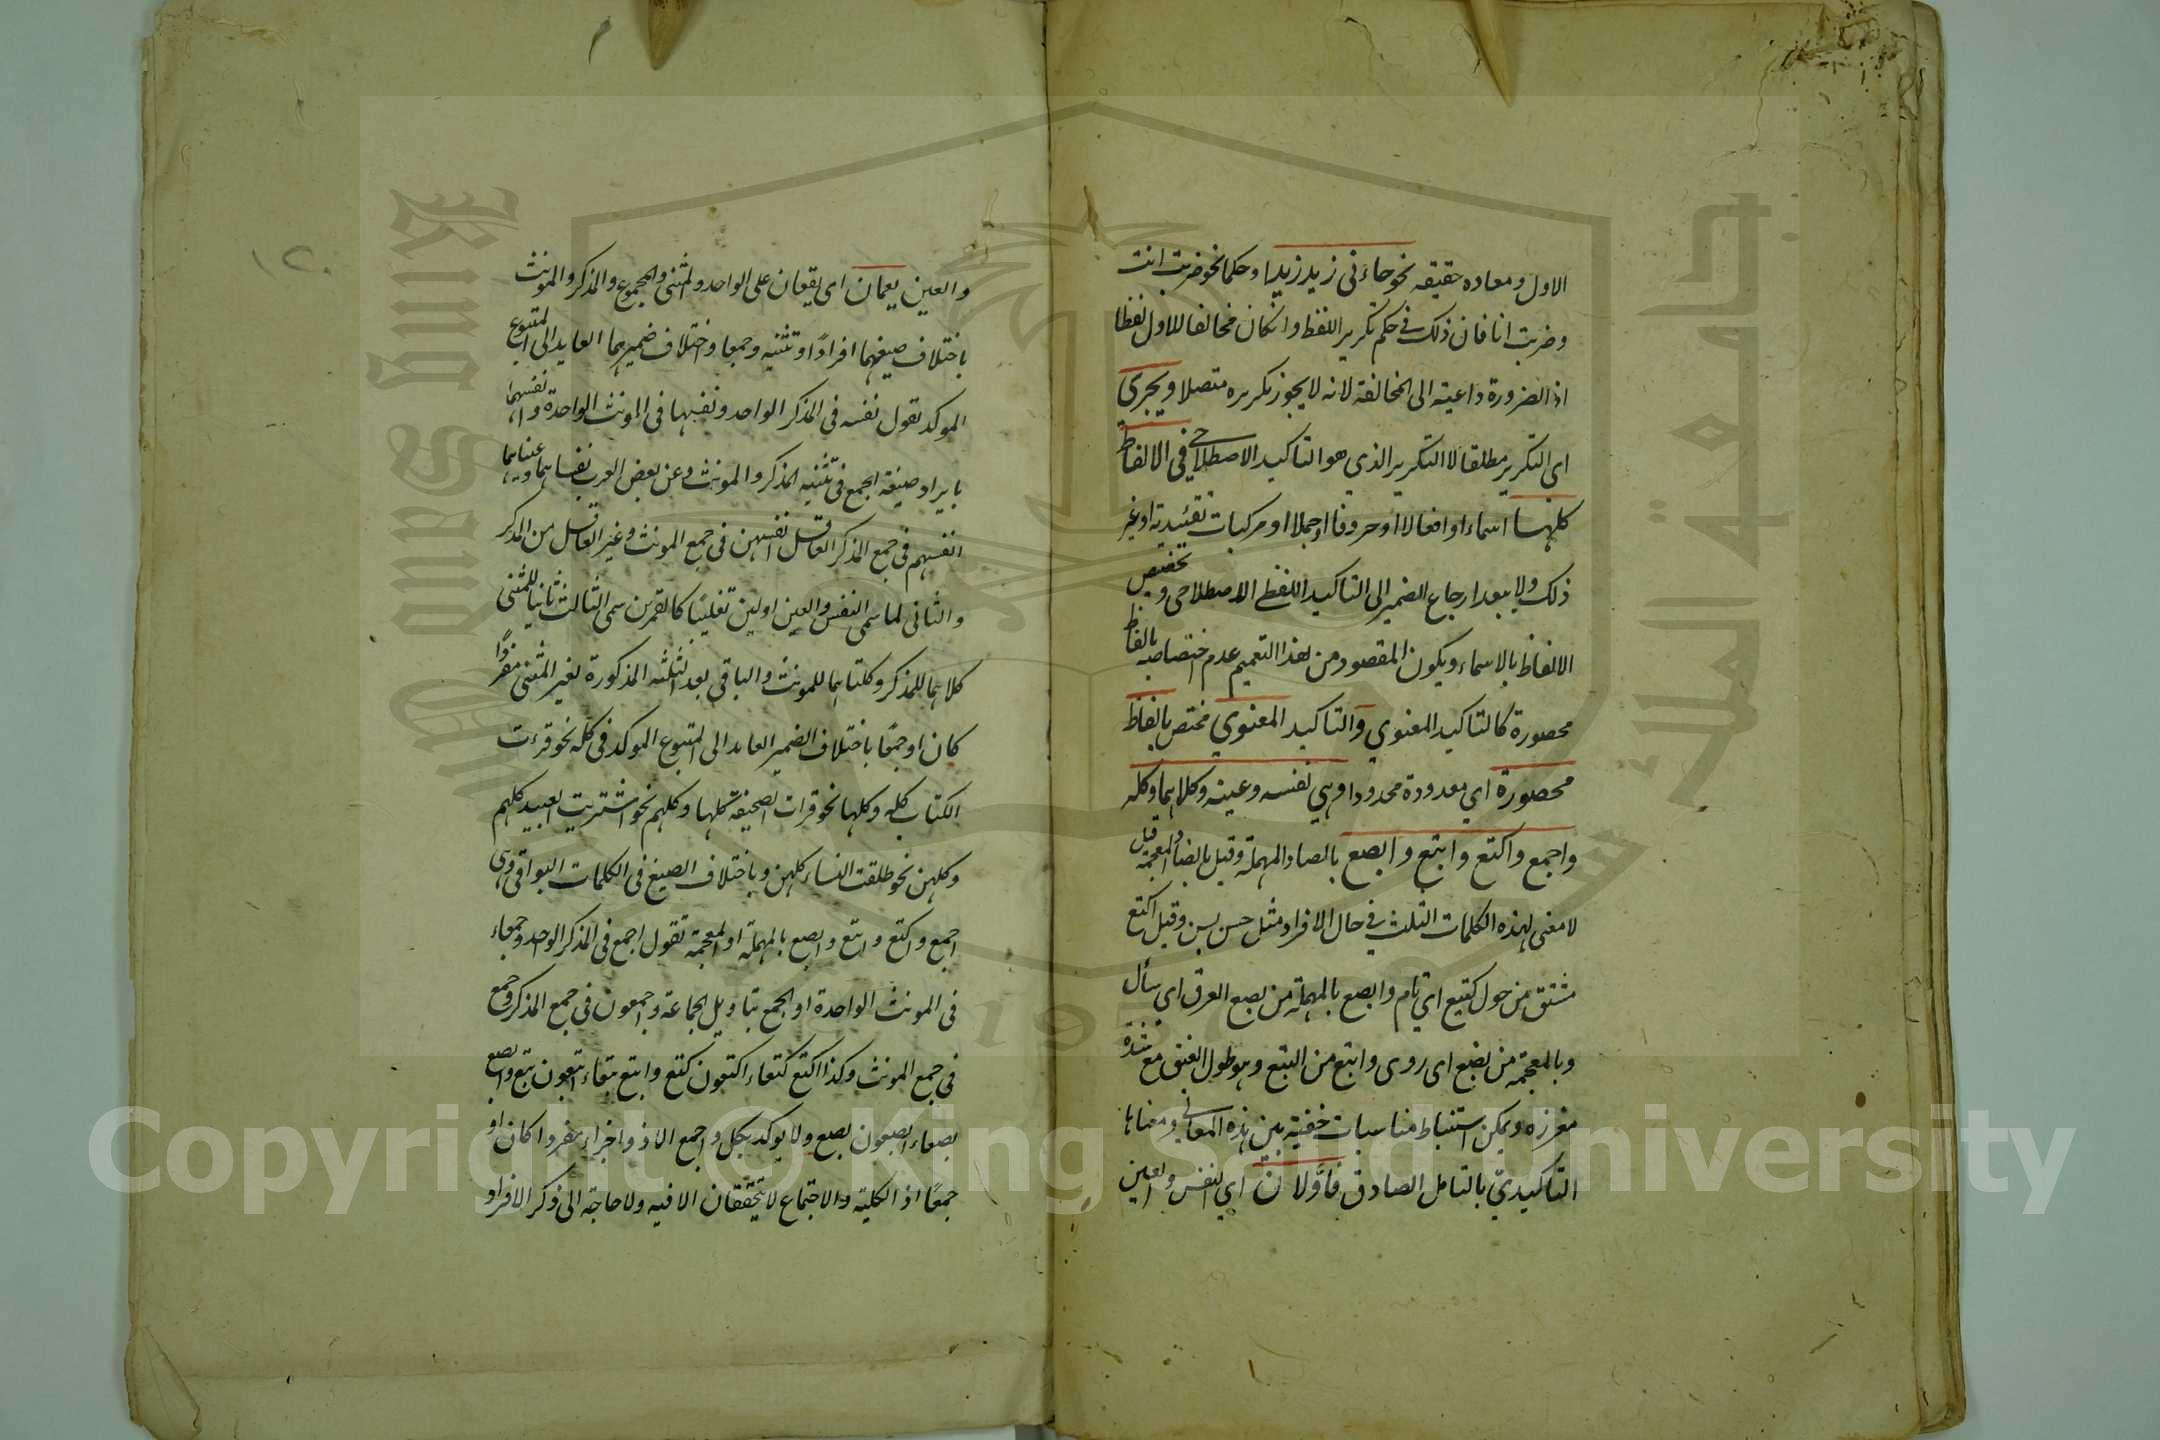 الاول ومعاده حقيقه نحو جاءنى زيد زيد او حكما نحو ضربت انت
وضربت انا فان ذلك فى حكم تكرير اللفظ وانكان مخالفا للاول لفظا
اذ الضرورة داعية الى المخالفة لانه لا يجوز تكريره متصلا ويجرى
اى التكرير مطلقا لا التكرير الذي هو التاكيد الاصطلاحى فى الالفاظ
كلها اسماء او افعالا او حروفا او جملا او مركبات تقئيدية او غير
ذلك ولا يبعد ارجاع الضمير الى التاكيد اللفظى الاصطلاحى وتخصيص
الالفاظ بالاسماء ويكون المقصود من هذا التعميم عدم اختصاصه بالفاظ
محصورة كالتاكيد المعنوي والتاكيد المعنوي مختص بالفاظ
محصورة اي معدودة محدودا وهي نفسه وعينه وكلاهما وكله
واجمع واكتع وابتع وابصع بالصاد المهملة وقيل بالضاد المعجمة قيل
لا معنى لهذه الكلمات الثلث في حال الافراد مثل حسن بسن وقيل اكتع
مشتق من حول كتيع اي تام وابصع بالمهملة من بصع العرق اى سأل
وبالمعجمة من بضع اى روى وابتع من البتع وهو طول العنق مع شدة
مغرزه ويمكن استنباط مناسبات خفية بين هذه المعانى ومعناها
التاكيديّ بالتامل الصادق فاوّلان اي النفس والعين
والعين يعمان اى يقعان على الواحد والمثنى والمجموع والمذكر والمونث
باختلاف صيغهما افرادًا وتثنيه وجمعا واختلاف ضميرهما العايد الى المتبوع
الموكد تقول نفسه فى المذكر الواحد ونفسها فى المونث الواحدة وانفسهما
بايراد صيغة الجمع فى تثنيه المذكر والمونث وعن بعض العرب نفساهما وعيناهما
انفسهم فى جمع المذكر العاقل انفسهن فى جمع المونث وغير العاقل من المذكر
والثانى لما سمى النفس والعين اولين تغليبًا كالقمرين سمى الثالث ثانيا للمثنى
كلاهما للمذكر وكلتاهما للمونث والباقى بعد الثلثه المذكورة لغير المثنى مفردًا
كان او جمعًا باختلاف الضمير العايد الى المتبوع الموكد فى كله نحو قرءت
الكتاب كله وكلها نحو قرات الصحيفة كلها وكلهم نحو اشتريت العبيد كلهم
وكلهن نحو طلقت النساء كلهن وباختلاف الصيغ فى الكلمات البواقى وهى
اجمع واكتع وابتع وابصع بالمهملة او المعجمة تقول اجمع فى المذكر الواحد وجمعاء
فى المونث الواحدة او الجمع بتاويل الجماعة واجمعون فى جمع المذكر وجمع
فى جمع المونث وكذا اكتع كتعاء اكتعون كتع وابتع بتعاء ابتعون بتع وابصع
بصعاء ابصعون بصع ولا يوكد بكل واجمع الا ذو اجزاء مفردا كان او
جمعًا اذ الكلية والاجتماع لا يتحققان الا فيه ولا حاجة الى ذكر الافراد
١٢٠
Copyright © King Saud University
جامعة الملك سعود
King Saud University